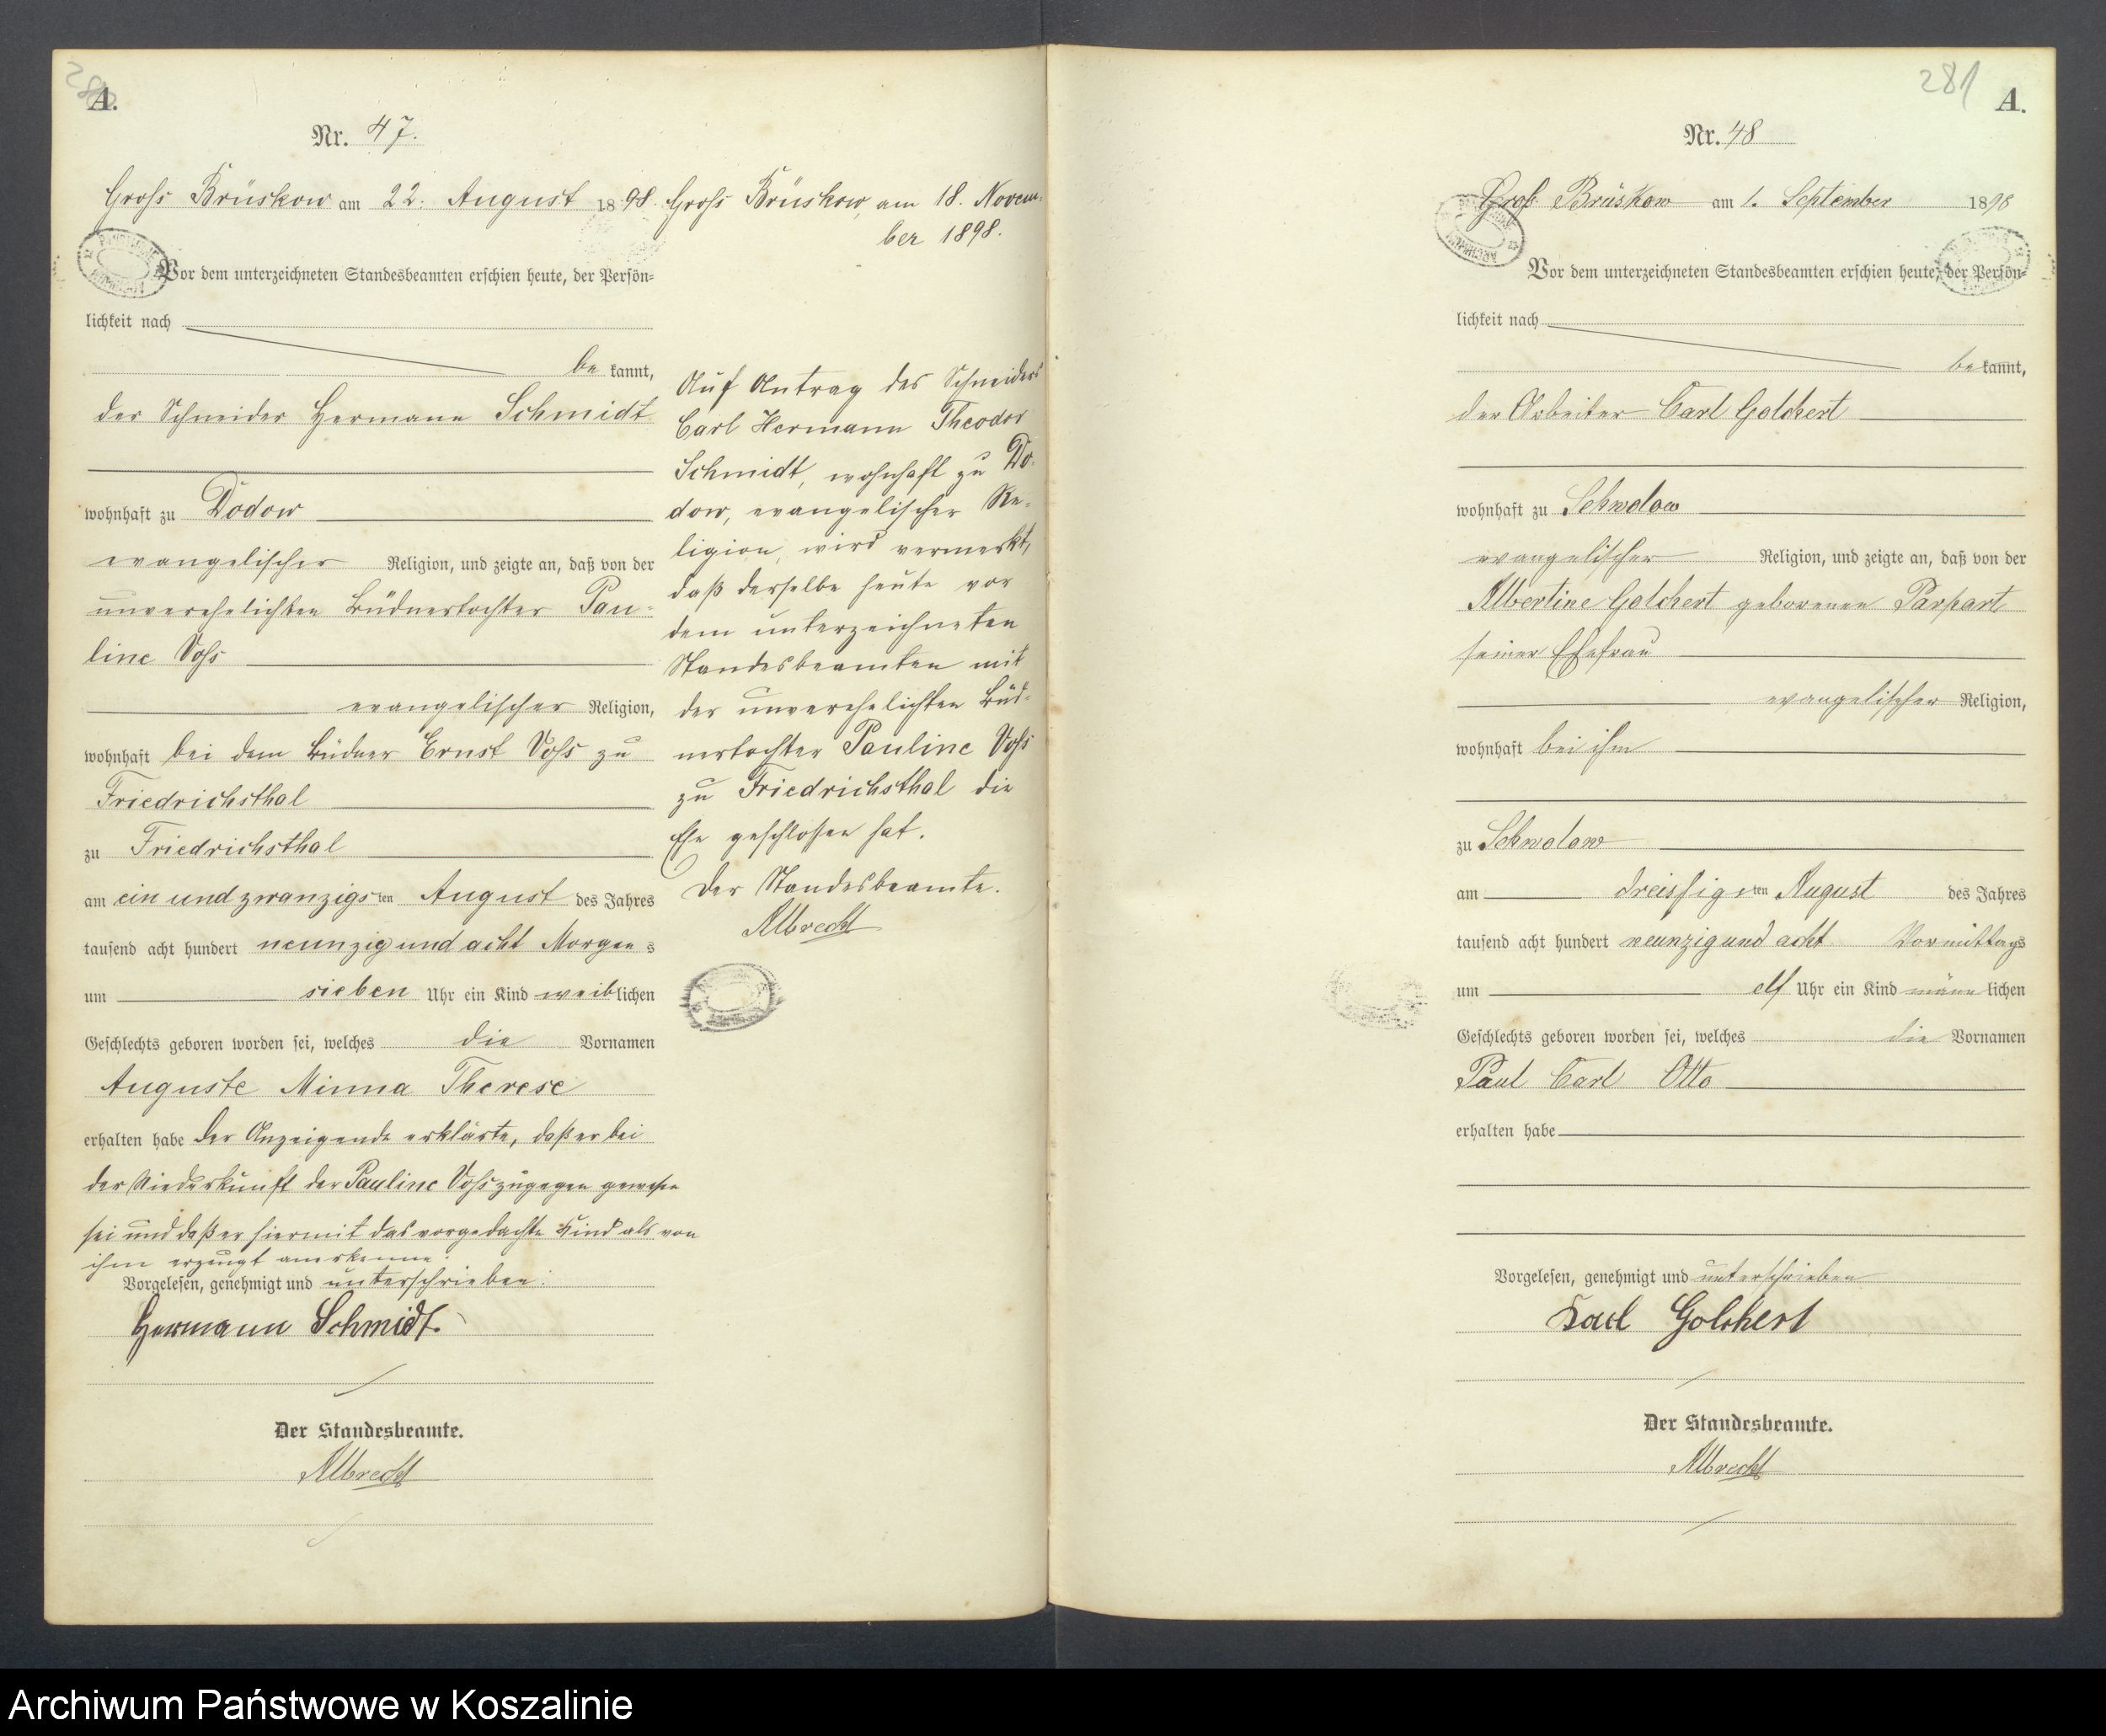 280
A.
Nr. 47.
Groß Brüskow am 22. August 1898.
Vor dem unterzeichneten Standesbeamten erschien heute, der Persön-
lichkeit nach
be kannt,
der Schneider Hermann Schmidt
wohnhaft zu Dodow
evangelischer Religion, und zeigte an, daß von der
unverehelichten Büdnertochter Pau-
line Voß
evangelischer Religion,
wohnhaft bei dem Büdner Ernst Voß zu
Friedrichsthal
zu Friedrichsthal
am ein und zwanzigsten August des Jahres
tausend acht hundert neunzig und acht Morgens
um sieben Uhr ein Kind weiblichen
Geschlechts geboren worden sei, welches die Vornamen
Auguste Minna Therese
erhalten habe Der Anzeigende erklärte, daß er bei
der Niederkunft der Pauline Voß zugegen gewesen
sei und daß er hiermit das vorgedachte Kind als von
ihm erzeugt anerkenne.
Vorgelesen, genehmigt und unterschrieben:
Hermann Schmidt.
Der Standesbeamte.
Albrecht
Groß Brüskow, am 18. Novem-
ber 1898.
Auf Antrag des Schneiders
Carl Hermann Theodor
Schmidt, wohnhaft zu Do-
dow, evangelischer Re-
ligion, wird vermerkt,
daß derselbe heute vor
dem unterzeichneten
Standesbeamten mit
der unverehelichten Büd-
nertochter Pauline Voß
zu Friedrichsthal die
Ehe geschloßen hat.
Der Standesbeamte.
Albrecht
281
A.
Nr. 48
Groß Brüskow am 1. September 1898
Vor dem unterzeichneten Standesbeamten erschien heute, der Persön-
lichkeit nach
be kannt,
der Arbeiter Carl Golchert
wohnhaft zu Schwolow
evangelischer Religion, und zeigte an, daß von der
Albertine Golchert geborenen Parpart
seiner Ehefrau
evangelischer Religion,
wohnhaft bei ihm
zu Schwolow
am dreißigsten August des Jahres
tausend acht hundert neunzig und acht Vormittags
um elf Uhr ein Kind männlichen
Geschlechts geboren worden sei, welches die Vornamen
Paul Carl Otto
erhalten habe
Vorgelesen, genehmigt und unterschrieben
Karl Golchert
Der Standesbeamte.
Albrecht
Archiwum Państwowe w Koszalinie